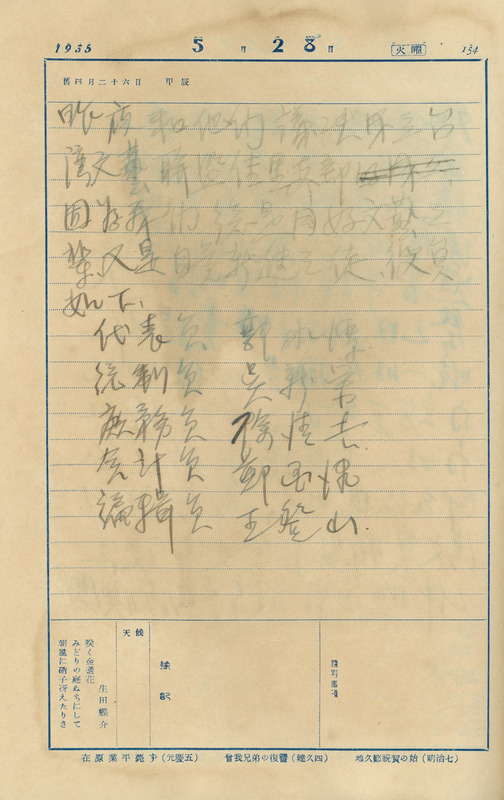 1935 5月28日 火曜 134
舊四月二十六日 甲辰
昨夜和他們議決組立台
灣文藝聯盟佳里支部
因為我們總是同好文藝之
輩又是自覺新進之徒、役員
如下、
代表員 郭水潭
統制員 吳新榮
庶務員 徐清吉
会計員 鄭国津
編輯員 王登山.
天候
摘記
發信
咲く金盞花
みどりの庭ぬちにして
朝風に硝子冴えたりさ
生田蝶介
在原業平薨ず(元慶五) 曾我兄弟の復讐(建久四) 地久節祝賀の始(明治七)